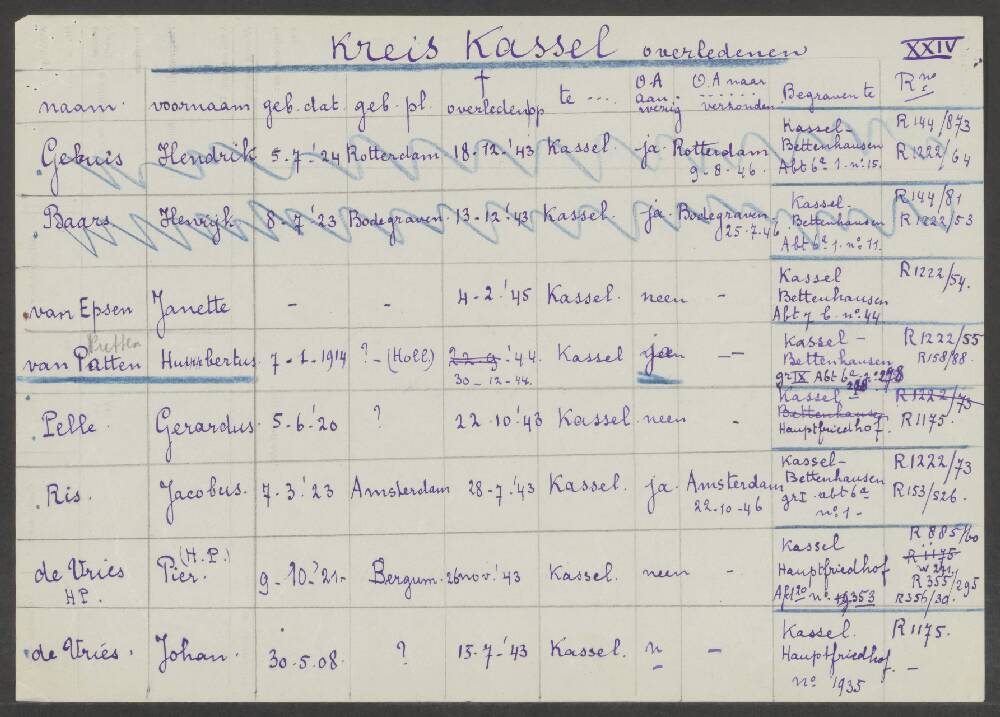 Kreis Kassel overledenen XXIV
naam. voornaam geb. dat. geb. pl. † overleden op te .... O.A aanwezig O.A naar ...... verzonden Begraven te R no s
Gebuis Hendrik 5-7-'24 Rotterdam 18-12-'43 Kassel ja Rotterdam 9-8-46. Kassel- Bettenhausen Abt 6a 1. no 15. R144/873 R1222/64
Baars Henrijk 8-7-'23 Bodegraven 13-12-'43 Kassel. ja Bodegraven 25.7.46 Kassel. Bettenhausen Abt 6a 1. no 11. R144/81 R1222/53
van Epsen Janette - - 4-2-'45 Kassel. neen - Kassel Bettenhausen Abt 7 b. no 44 R1222/54.
van Patten Putten Huibertus 7-1-1914 ?-(Holl) 22-9-'44. 30-12-44. Kassel ja -- Kassel- Bettenhausen gr IX Abt 6a R1222/55 R158/88.
Pelle. Gerardus. 5-6-'20 ? 22-10-'43 Kassel. neen - Kassel- Bettenhausen Hauptfriedhof. R1222/73 R1175.
Ris. Jacobus. 7-3-'23 Amsterdam 28-7-'43 Kassel. ja. Amsterdam 22-10-46 Kassel- Bettenhausen gr I. abt 6a no 1- R1222/73 R153/526.
de Vries HP. Pier. (H.P.) 9-10-'21- Bergum. 26 nov. '43 Kassel. neen - Kassel Hauptfriedhof no 19353 R885/60 R1175 R355/295 R356/30.
de Vries. Johan. 30.5.08. ? 15-7-'43 Kassel. n - Kassel. Hauptfriedhof. no 1935 R1175. -